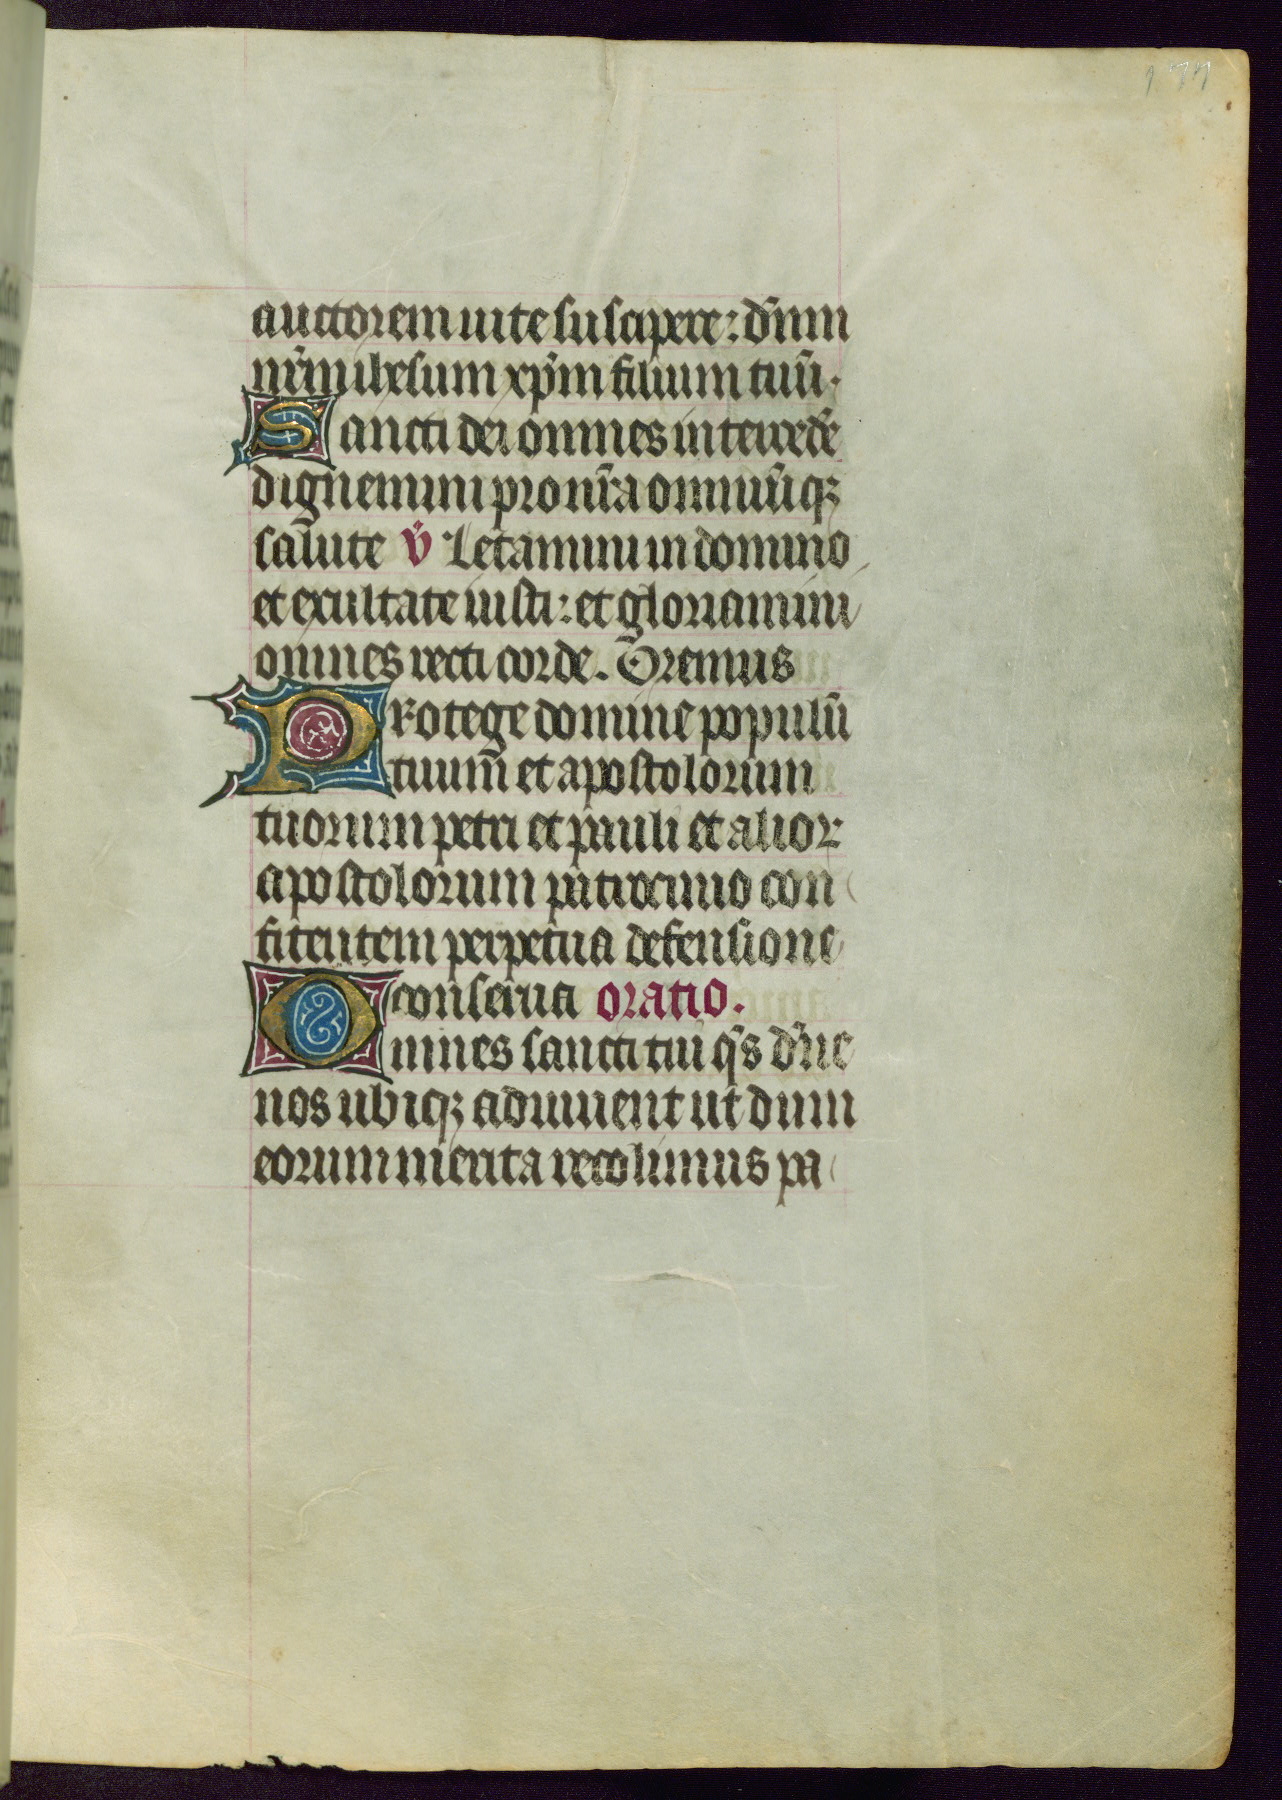 177
auctorem uite suscipere: dn̄m
nr̄m ihesum xp̄m filium tuū.
Sancti dei omnes intercede͂
dignemini pro nr̄a omniūqꝫ
salute ℣ Letamini in domino
et exultate iusti: et gloriamini
omnes recti corde. Oremus
Protege domine populū
tuum et apostolorum
tuorum petri et pauli et alioꝝ
apostolorum patrocinio con
fitentem perpetua defensione
conserua oratio.
Omnes sancti tui qs̄ dn̄e
nos ubiqꝫ adiuuent ut dum
eorum merita recolimus pa